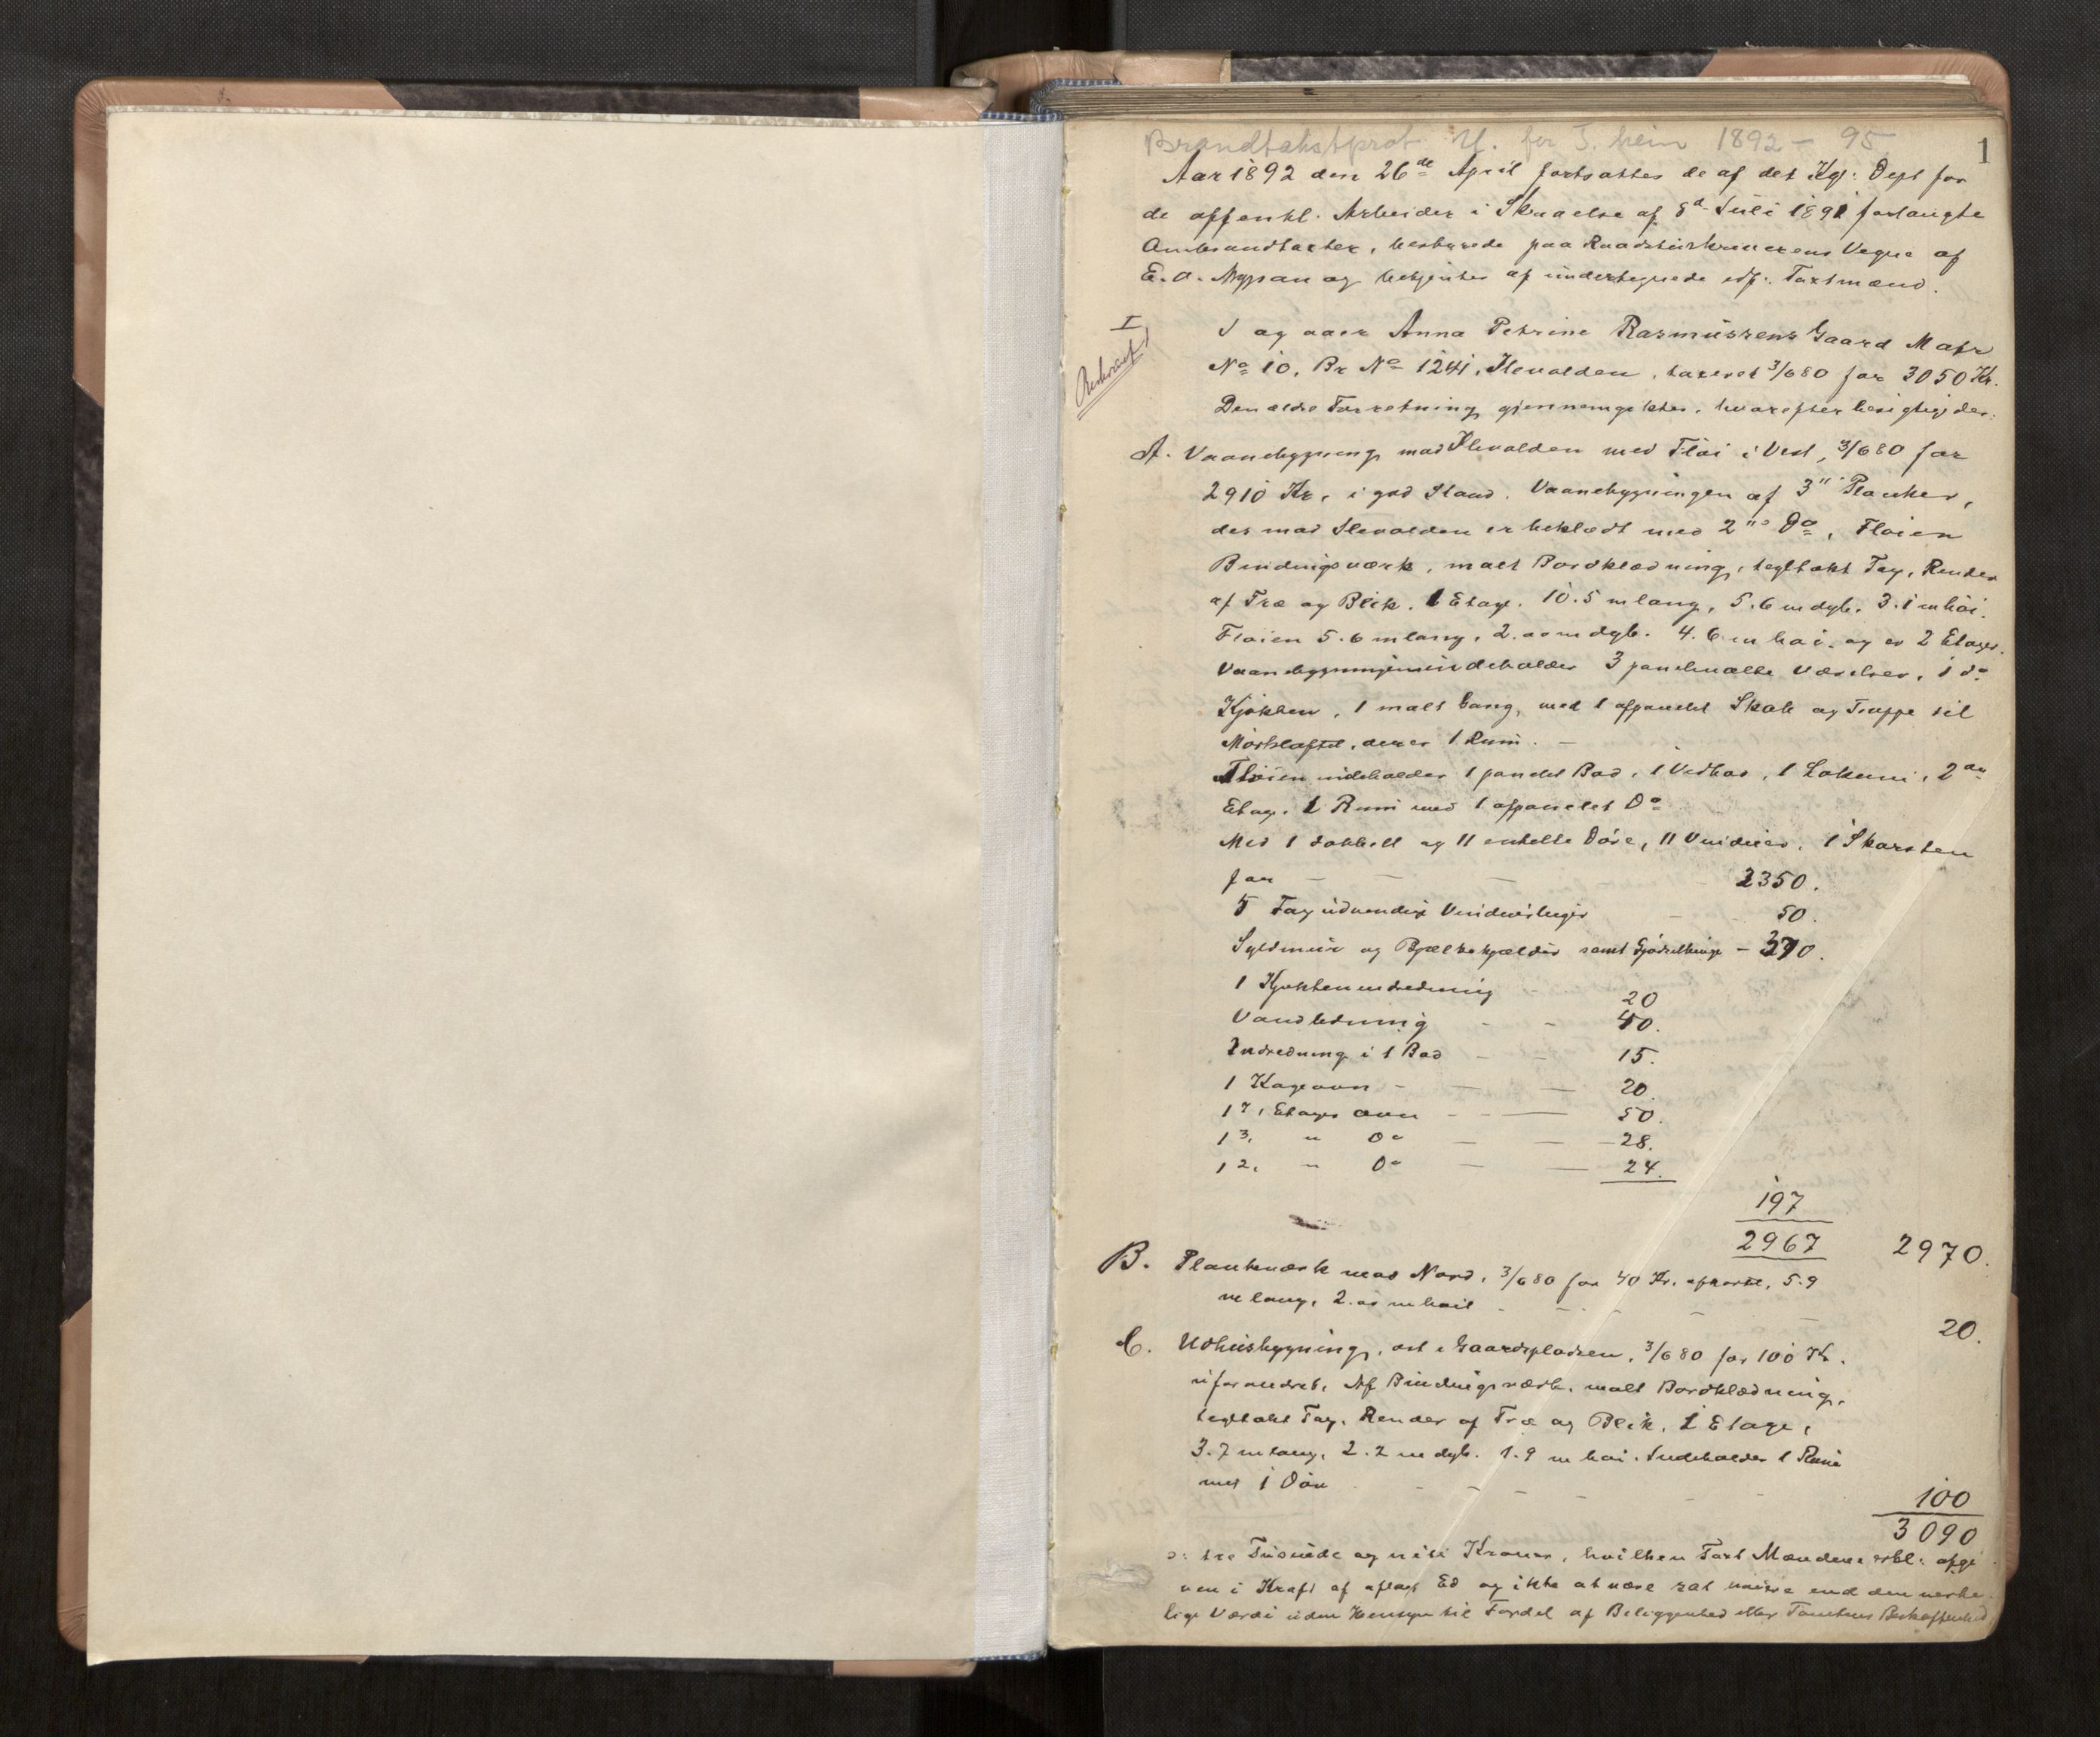 Brandtakstprot U. for T.heim 1892 - 95
1
Aar 1892 den 26de April fortsattes de af det Kgl: Dept for
de offentl. Arbeider i Skrivelse af 8d Juli 1891 forlangte
Ombrandtaxter, bestyrede paa Raadstuskriverens Vegne af
E. A. Mypan og betjentes af undertegnede edf: Taxtmænd.
I
I og over Anna Petrine Rasmussens Gaard Matr
No 10, Br No 1241, Ilevolden, taxeret 3/680 for 3050 Kr.
Den ældre Forretning gjennemgikkes, hvorefter besigtigedes:
A. Vaanebygning mod Ilevolden med Fløi i Vest, 3/680 for
2910 Kr, i god Stand. Vaanebygningen af 3" Planker,
der mod Ilevolden er beklædt med 2" Do, Fløien
Bindingsværk, malt Bordklædning, tegltækt Tag, Render
af Træ og Blik. 1 Etage. 10.5 m lang, 5.6 m dyb. 3.1 m høi.
Fløien 5.6 m lang, 2.00 m dyb. 4.6 m høi og er 2 Etager.
Vaanebygningen indeholder 3 panelmalte Værelser, 1 do
Kjøkken, 1 malt Gang, med 1 afpanelet Skab og Trappe til
Mørkloftet, der er 1 Rum. —
Fløien indeholder 1 panelet Bod, 1 Vedbod, 1 Lokum, 2den
Etage, 1 Rum med 1 afpanelet Do
Med 1 dobbelt og 11 enkelte Døre, 11 Vinduer, 1 Skorsten
for — — — 2350.
5 Fag udvendige Vinduer — 50.
Syldmur og Bjælkekjælder samt Gjødselbinge — 370.
1 Kjøkkenindredning — 20
Vandledning — — 40.
Indredning i 1 Bod — — 15.
1 Kageovn — — — 20.
1 7, Etages ovn — — 50.
1 3, " Do — — 28.
1 2, " Do — — 24.
197
2967 2970.
B. Plankeværk mod Nord, 3/680 for 40 Kr, 5.9
m lang, 2.00 m høit — — — 20.
C. Udhusbygning, øst i Gaardspladsen, 3/680 for 100 Kr.
uforandret. Af Bindingsværk, malt Bordklædning,
tegltækt Tag, Render af Træ og Blik. 1 Etage,
3.7 m lang, 2.2 m dyb. 1.9 m høi. Indeholder 1 Rum
med 1 Dør — — — 100
3090
ɔ: tre Tusinde og niti Kroner, hvilken Taxt Mændene erkl: afgi
ven i Kraft af aflagt Ed og ikke at være sat høiere end den virke
lige Værdi uden Hensyn til Fordel af Beliggenhed eller Tomtens Beskaffenhed